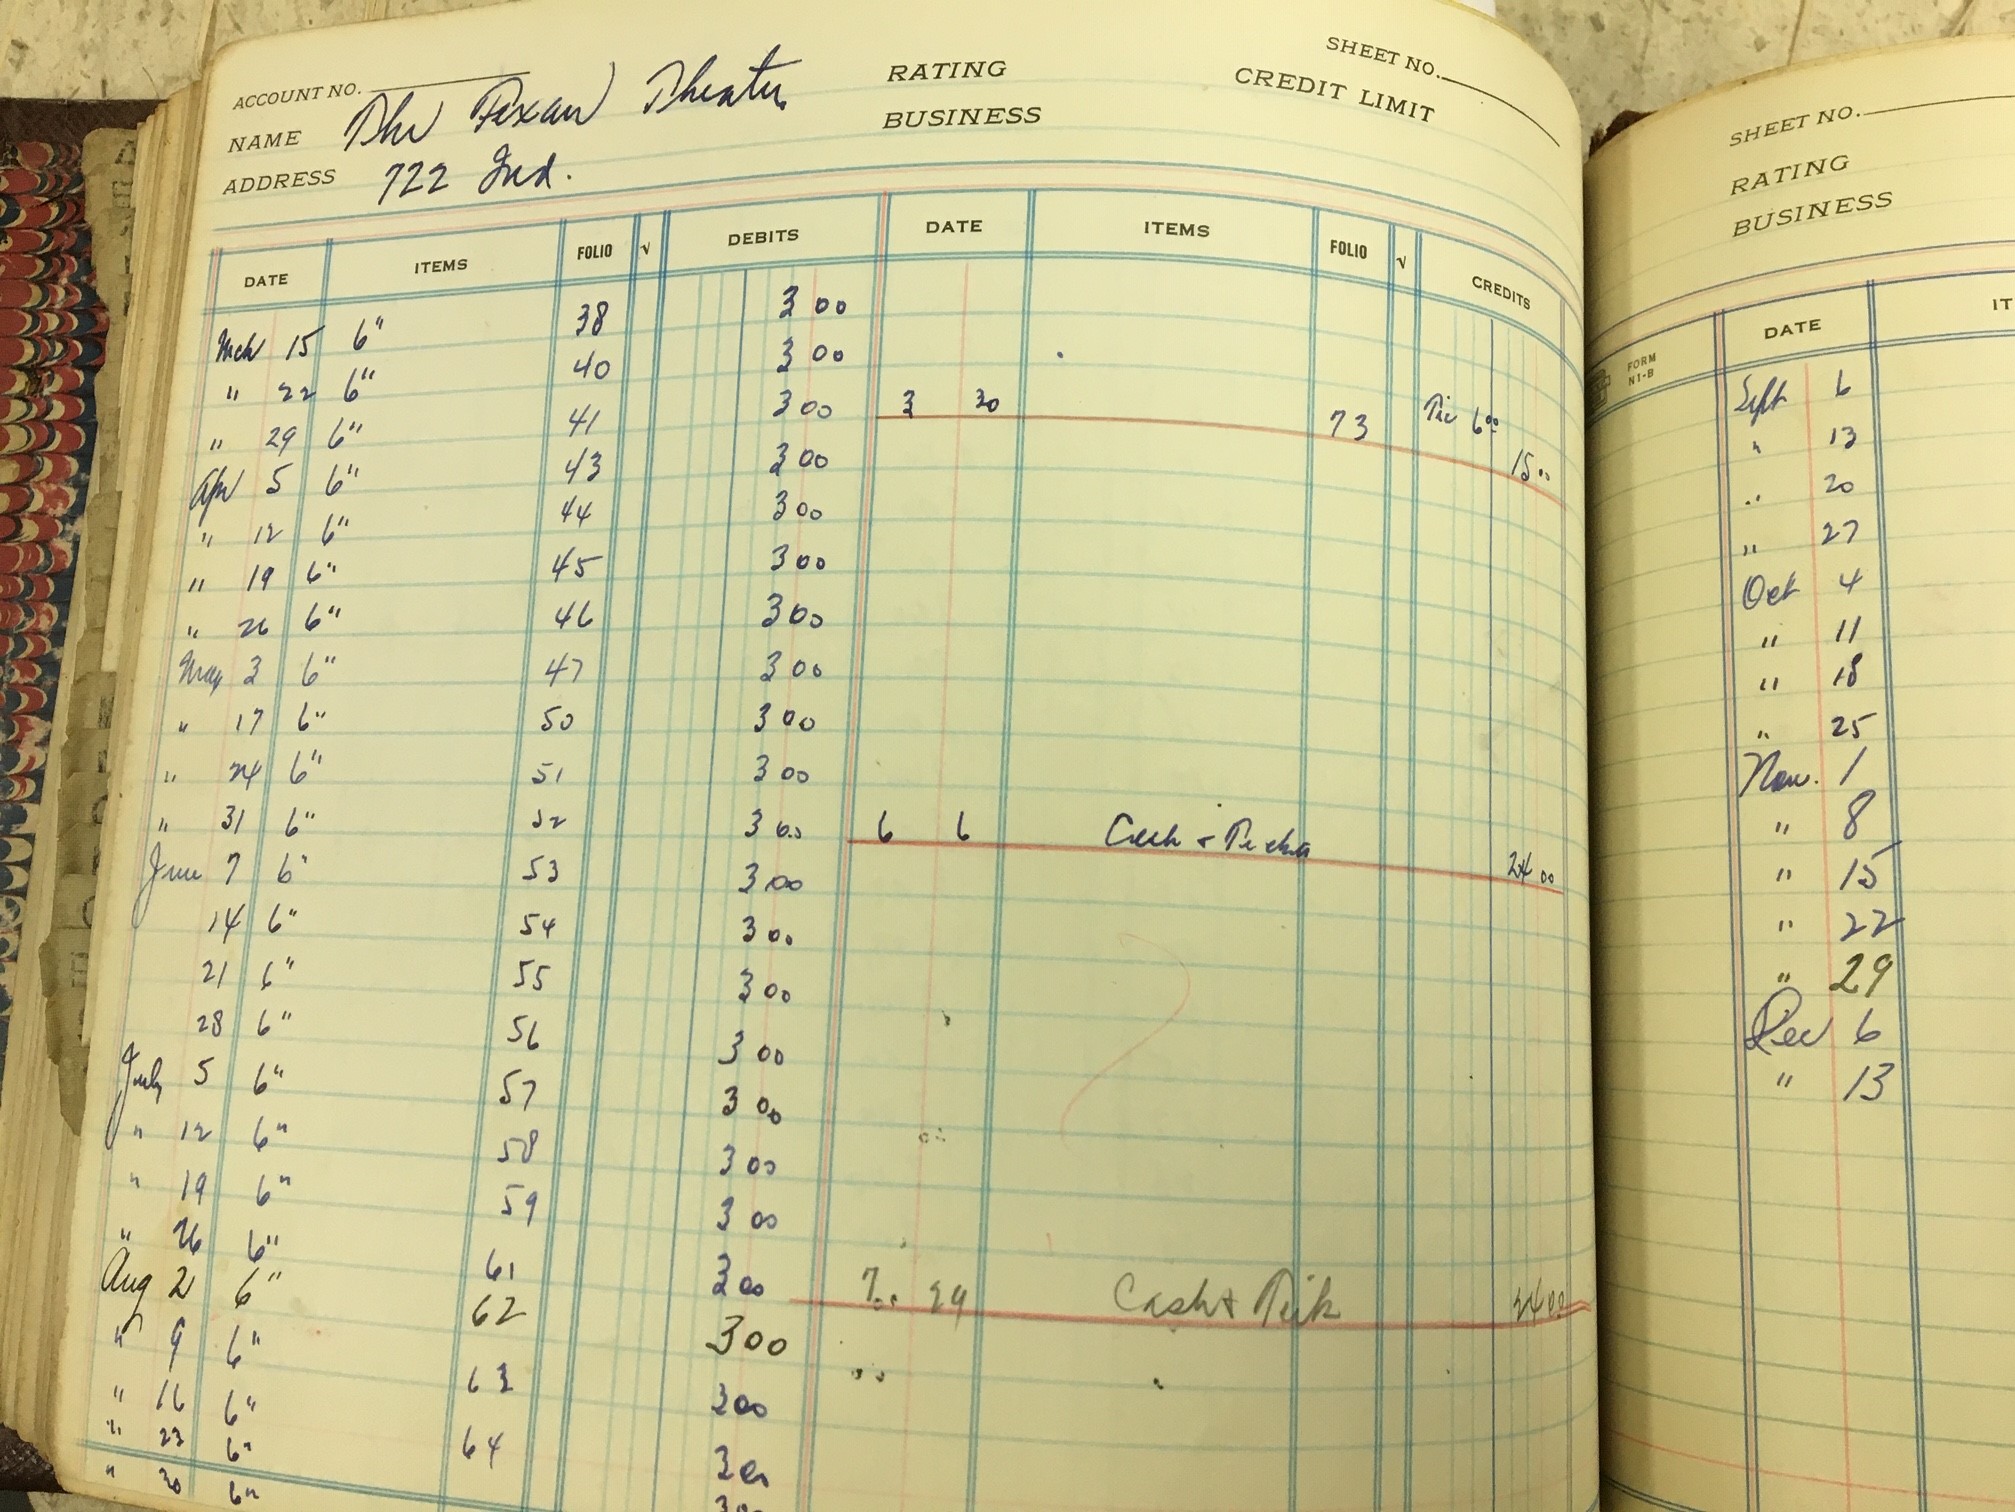 SHEET NO.
ACCOUNT NO. RATING CREDIT LIMIT
NAME The Texan Theater BUSINESS
ADDRESS 722 Ind.
DATE ITEMS FOLIO √ DEBITS DATE ITEMS FOLIO √ CREDITS
Mch 15 6" 38 3 00
" 22 6" 40 3 00
" 29 6" 41 3 00 3 30 73 Tic 6 00 15 00
Apr 5 6" 43 3 00
" 12 6" 44 3 00
" 19 6" 45 3 00
" 26 6" 46 3 00
May 3 6" 47 3 00
" 17 6" 50 3 00
" 24 6" 51 3 00
" 31 6" 52 3 00 6 6 Cash + 24 00
June 7 6" 53 3 00
14 6" 54 3 00
21 6" 55 3 00
28 6" 56 3 00
July 5 6" 57 3 00
" 12 6" 58 3 00
" 19 6" 59 3 00
" 26 6" 61 3 00 7 29 Cash + Tick 24 00
Aug 2 6" 62 3 00
" 9 6" 63 3 00
" 16 6" 64 3 00
" 23 6"
" 30 6"
SHEET NO.
RATING
BUSINESS
FORM
N1-B
DATE IT
Sept 6
" 13
" 20
" 27
Oct 4
" 11
" 18
" 25
Nov. 1
" 8
" 15
" 22
" 29
Dec 6
" 13